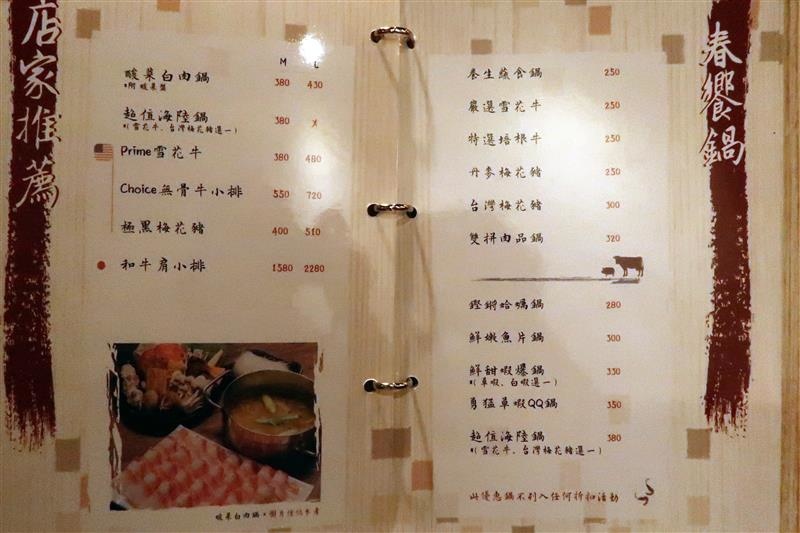 店家推薦
M L
酸菜白肉鍋 380 430
*附 酸菜盤
超值海陸鍋 380 x
*(雪花牛、台灣梅花豬選一)
Prime雪花牛 380 480
Choice無骨牛小排 550 720
極黑梅花豬 400 510
和牛肩小排 1580 2280
酸菜白肉鍋*圖片僅供參考
春饗鍋
養生蔬食鍋 250
嚴選雪花牛 250
特選培根牛 250
丹麥梅花豬 250
台灣梅花豬 300
雙拼肉品鍋 320
鏗鏘蛤蠣鍋 280
鮮嫩魚片鍋 300
鮮甜蝦爆鍋 330
*(草蝦、白蝦選一)
勇猛草蝦QQ鍋 350
超值海陸鍋 380
*(雪花牛、台灣梅花豬選一)
此優惠鍋不列入任何折扣活動